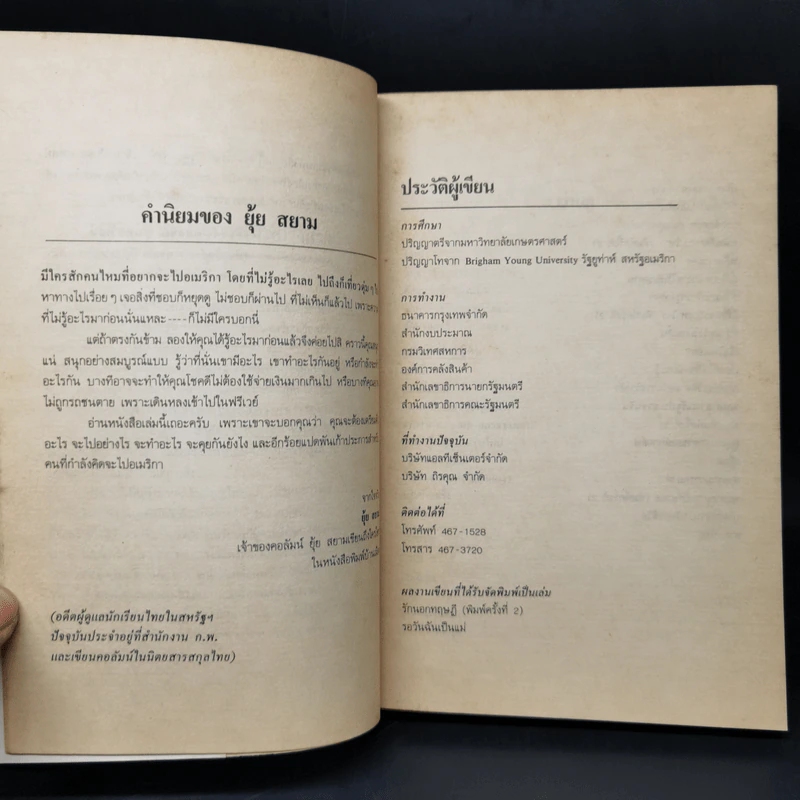 คำนิยมของ ยุ้ย สยาม
มีใครสักคนไหมที่อยากจะไปอเมริกา โดยที่ไม่รู้อะไรเลย ไปถึงก็เที่ยวคุ่ม ๆ
หาทางไปเรื่อย ๆ เจอสิ่งที่ชอบก็หยุดดู ไม่ชอบก็ผ่านไป ที่ไม่เห็นก็แล้วไป เพราะความ
ที่ไม่รู้อะไรมาก่อนนั่นแหละ ---- ก็ไม่มีใครบอกนี่
แต่ถ้าตรงกันข้าม ลองให้คุณได้รู้อะไรมาก่อนแล้วจึงค่อยไปสิ คราวนี้คุณ
แน่ สนุกอย่างสมบูรณ์แบบ รู้ว่าที่นั่นเขามีอะไร เขาทำอะไรกันอยู่ หรือกำลังจะ
อะไรกัน บางทีอาจจะทำให้คุณโชคดีไม่ต้องใช้จ่ายเงินมากเกินไป หรือบางที
ไม่ถูกรถชนตาย เพราะเดินหลงเข้าไปในฟรีเวย์
อ่านหนังสือเล่มนี้เถอะครับ เพราะเขาจะบอกคุณว่า คุณจะต้องเตรียม
อะไร จะไปอย่างไร จะทำอะไร จะคุยกันยังไง และอีกร้อยแปดพันเก้าประการสำหรับ
คนที่กำลังคิดจะไปอเมริกา
ยุ้ย สยาม
เจ้าของคอลัมน์ ยุ้ย สยามเขียนถึงใคร
ในหนังสือพิมพ์บ้านเมือง
(อดีตผู้ดูแลนักเรียนไทยในสหรัฐฯ
ปัจจุบันประจำอยู่ที่สำนักงาน ก.พ.
และเขียนคอลัมน์ในนิตยสารสกุลไทย)
ประวัติผู้เขียน
การศึกษา
ปริญญาตรีจากมหาวิทยาลัยเกษตรศาสตร์
ปริญญาโทจาก Brigham Young University รัฐยูท่าห์ สหรัฐอเมริกา
การทำงาน
ธนาคารกรุงเทพจำกัด
สำนักงบประมาณ
กรมวิเทศสหการ
องค์การคลังสินค้า
สำนักเลขาธิการนายกรัฐมนตรี
สำนักเลขาธิการคณะรัฐมนตรี
ที่ทำงานปัจจุบัน
บริษัทแอลทีเซ็นเตอร์จำกัด
บริษัท ถิรคุณ จำกัด
ติดต่อได้ที่
โทรศัพท์ 467-1528
โทรสาร 467-3720
ผลงานเขียนที่ได้รับจัดพิมพ์เป็นเล่ม
รักนอกทฤษฎี (พิมพ์ครั้งที่ 2)
รอวันฉันเป็นแม่